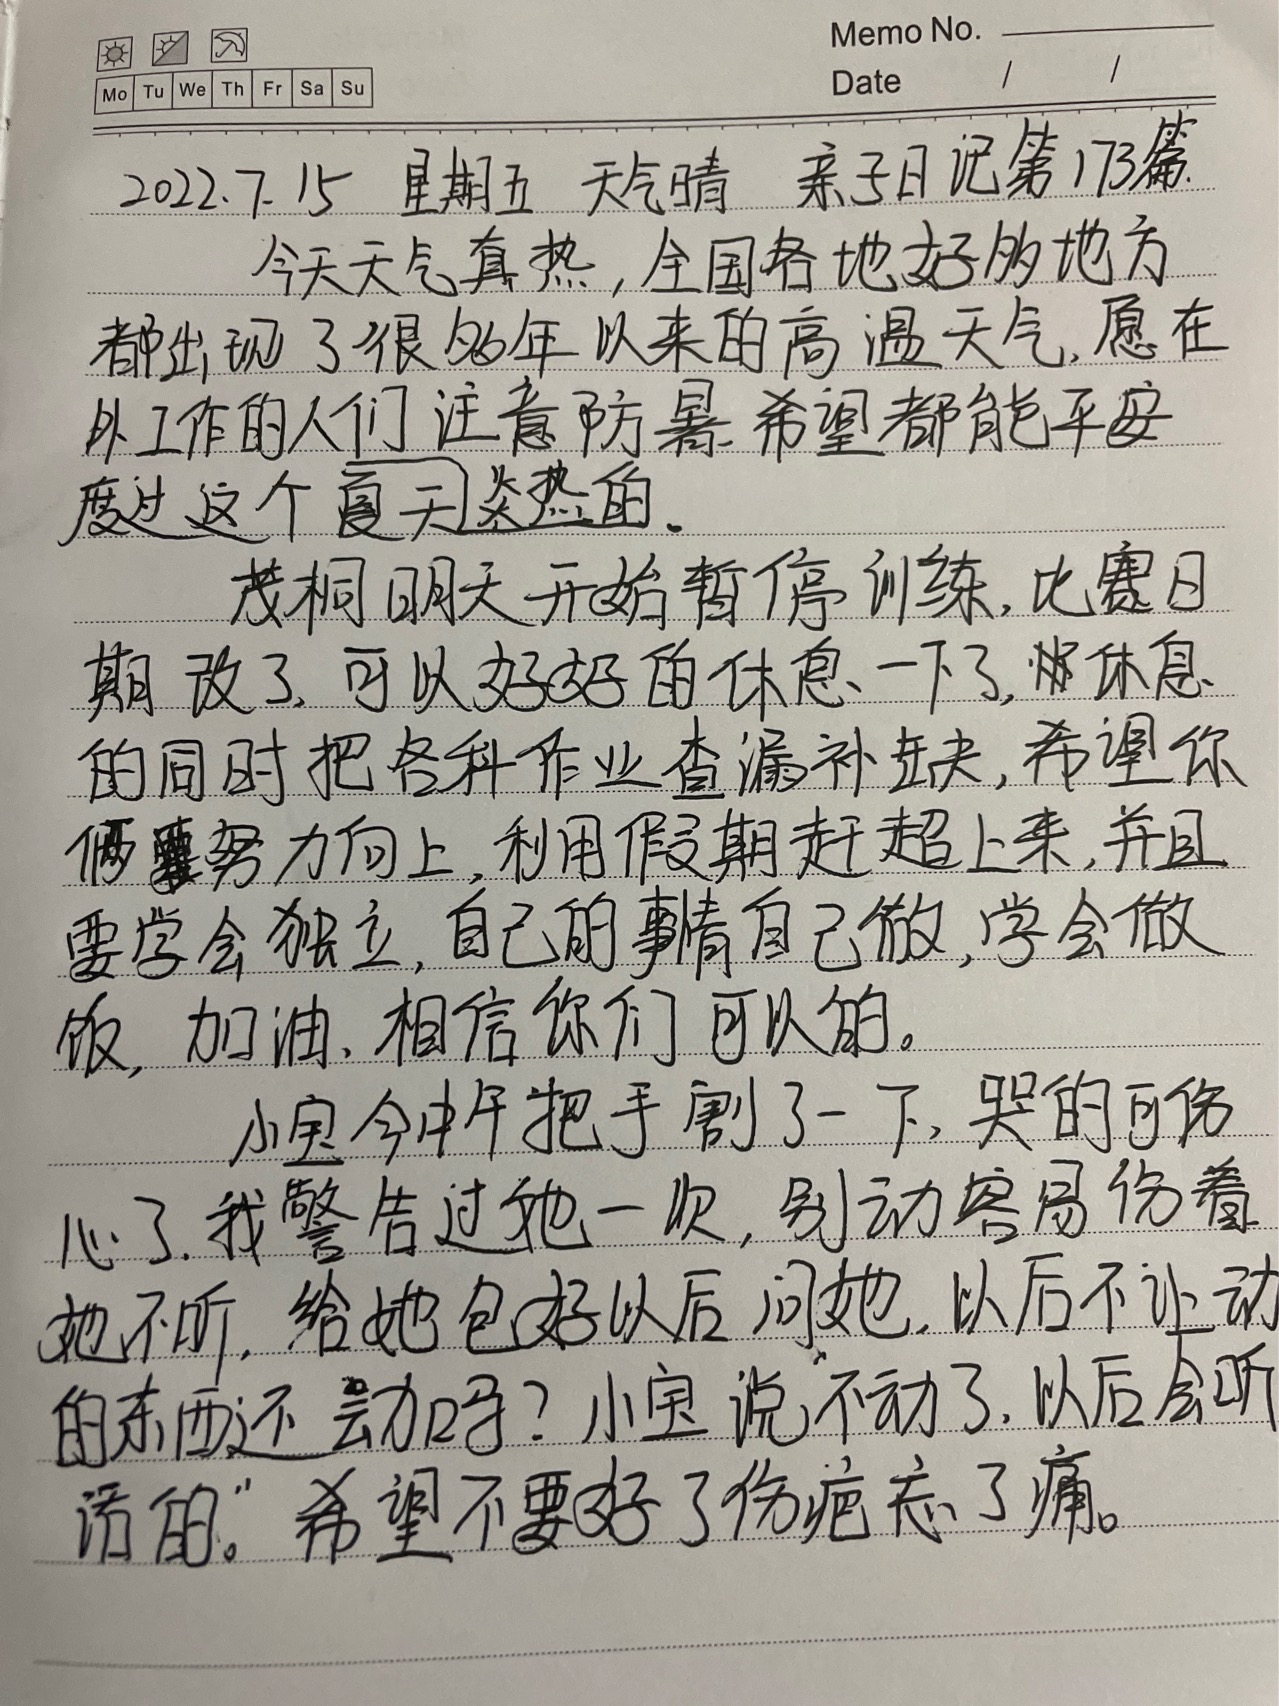 Memo No.
Mo Tu We Th Fr Sa Su
Date / /
2022.7.15 星期五 天气晴 亲子日记第173篇
今天天气真热,全国各地好多地方
都出现了很多年以来的高温天气,愿在
外工作的人们注意防暑.希望都能平安
度过这个夏天炎热的.
茂桐明天开始暂停训练,比赛日
期改了,可以好好的休息一下了,休息
的同时把各科作业查漏补缺,希望你
俩要努力向上,利用假期赶超上来,并且
要学会独立,自己的事情自己做,学会做
饭,加油、相信你们可以的。
小宝今中午把手割了一下,哭的可伤
心了.我警告过她一次,别动容易伤着
她不听,给她包好以后问她,以后不让动
的东西还动吗?小宝说"不动了,以后会听
话的。"希望不要好了伤疤忘了痛。